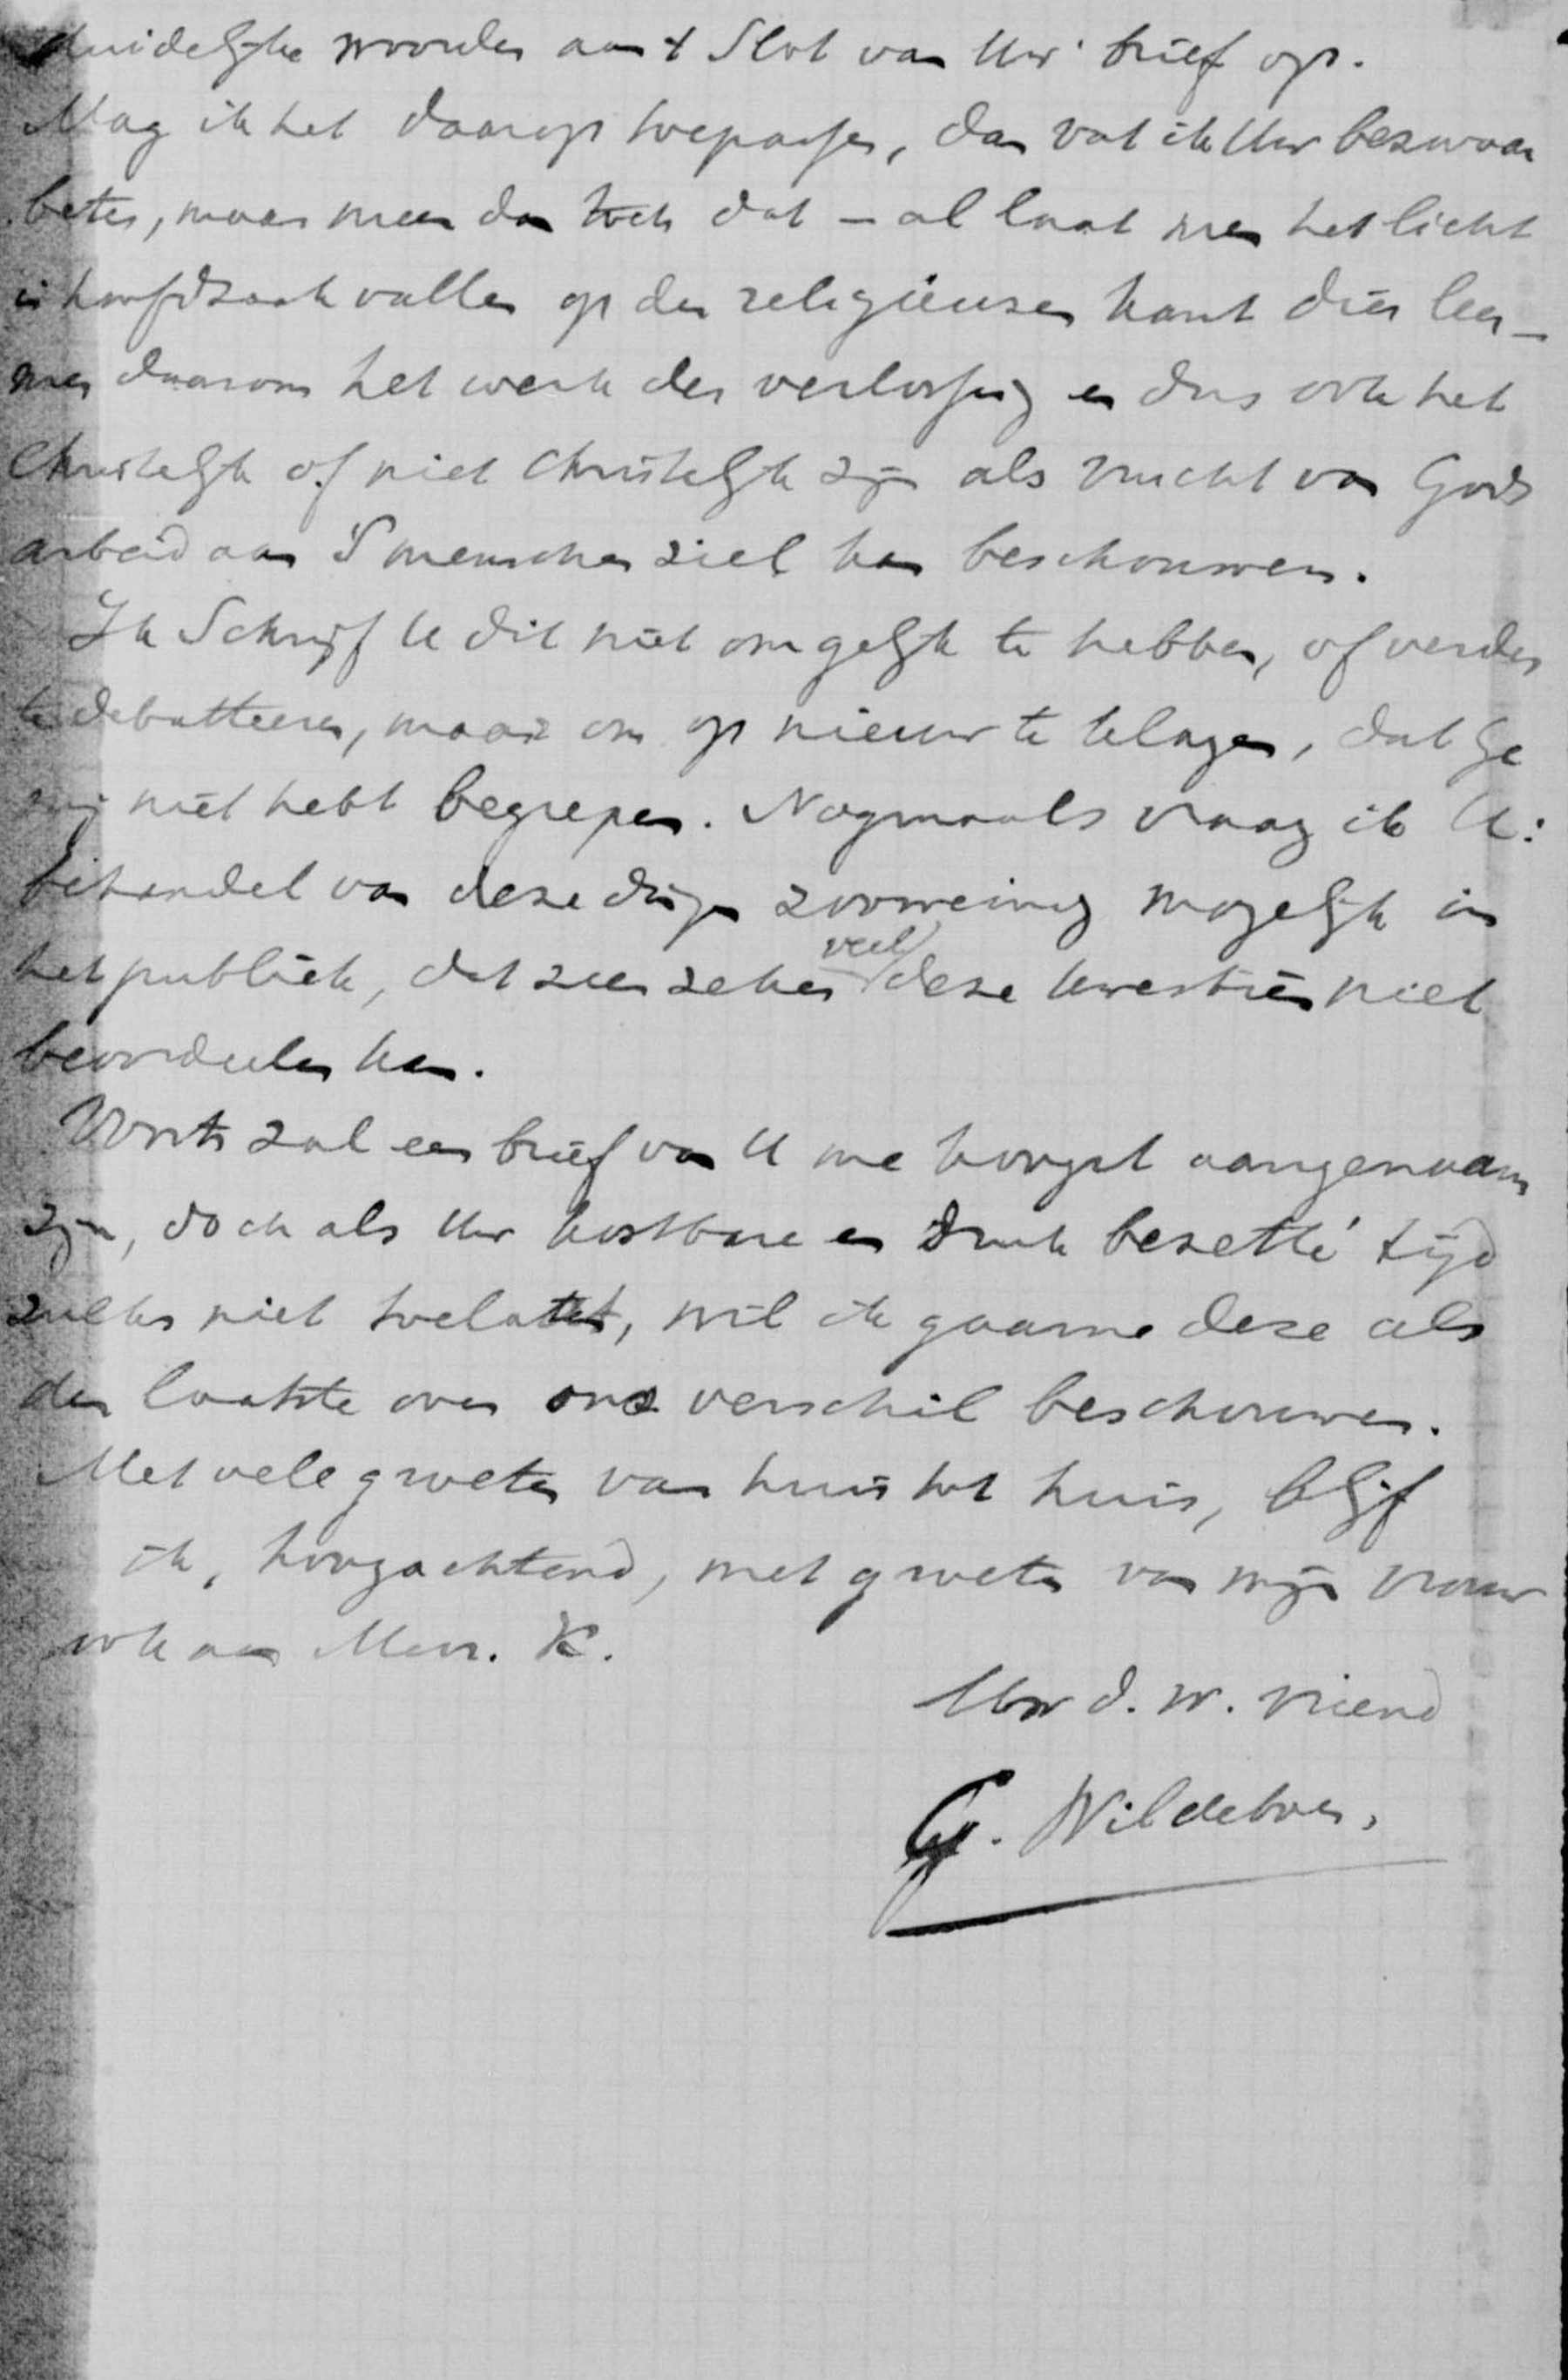 duidelijke woorden aan 't Slot van Uw brief op.
Mag ik het daarop toepassen, dan vat ik Uw bezwaar
beter, maar meen dan toch dat – al laat men het licht
in hoofdzaak vallen op den religieusen kant dier leer –
men daarom het werk der verlossing en dus ook het
Christelijk of niet Christelijk zijn als vrucht van Gods
arbeid aan 's menschen ziel kan beschouwen.
Ik Schrijf U dit niet om gelijk te hebben, of verder
te debatteeren, maar om op nieuw te klagen, dat Ge
mij niet hebt begrepen. Nogmaals vraag ik U:
behandel van deze dingen zoo weinig mogelijk in
het publiek, dat zeer zeker veel deze kwestiën niet
beoordeelen kan.
Voorts zal een brief van U me hoogst aangenaam
zijn, doch als Uw kostbare en druk bezette tijd
zulks niet toelaat, wil ik gaarne deze als
den laatste over ons verschil beschouwen.
Met vele groeten van huis tot huis, blijf
ik, hoogachtend, met groeten van mijn vrouw
ook aan Mevr. K.
Uw d. w. vriend
G. Wildeboer.